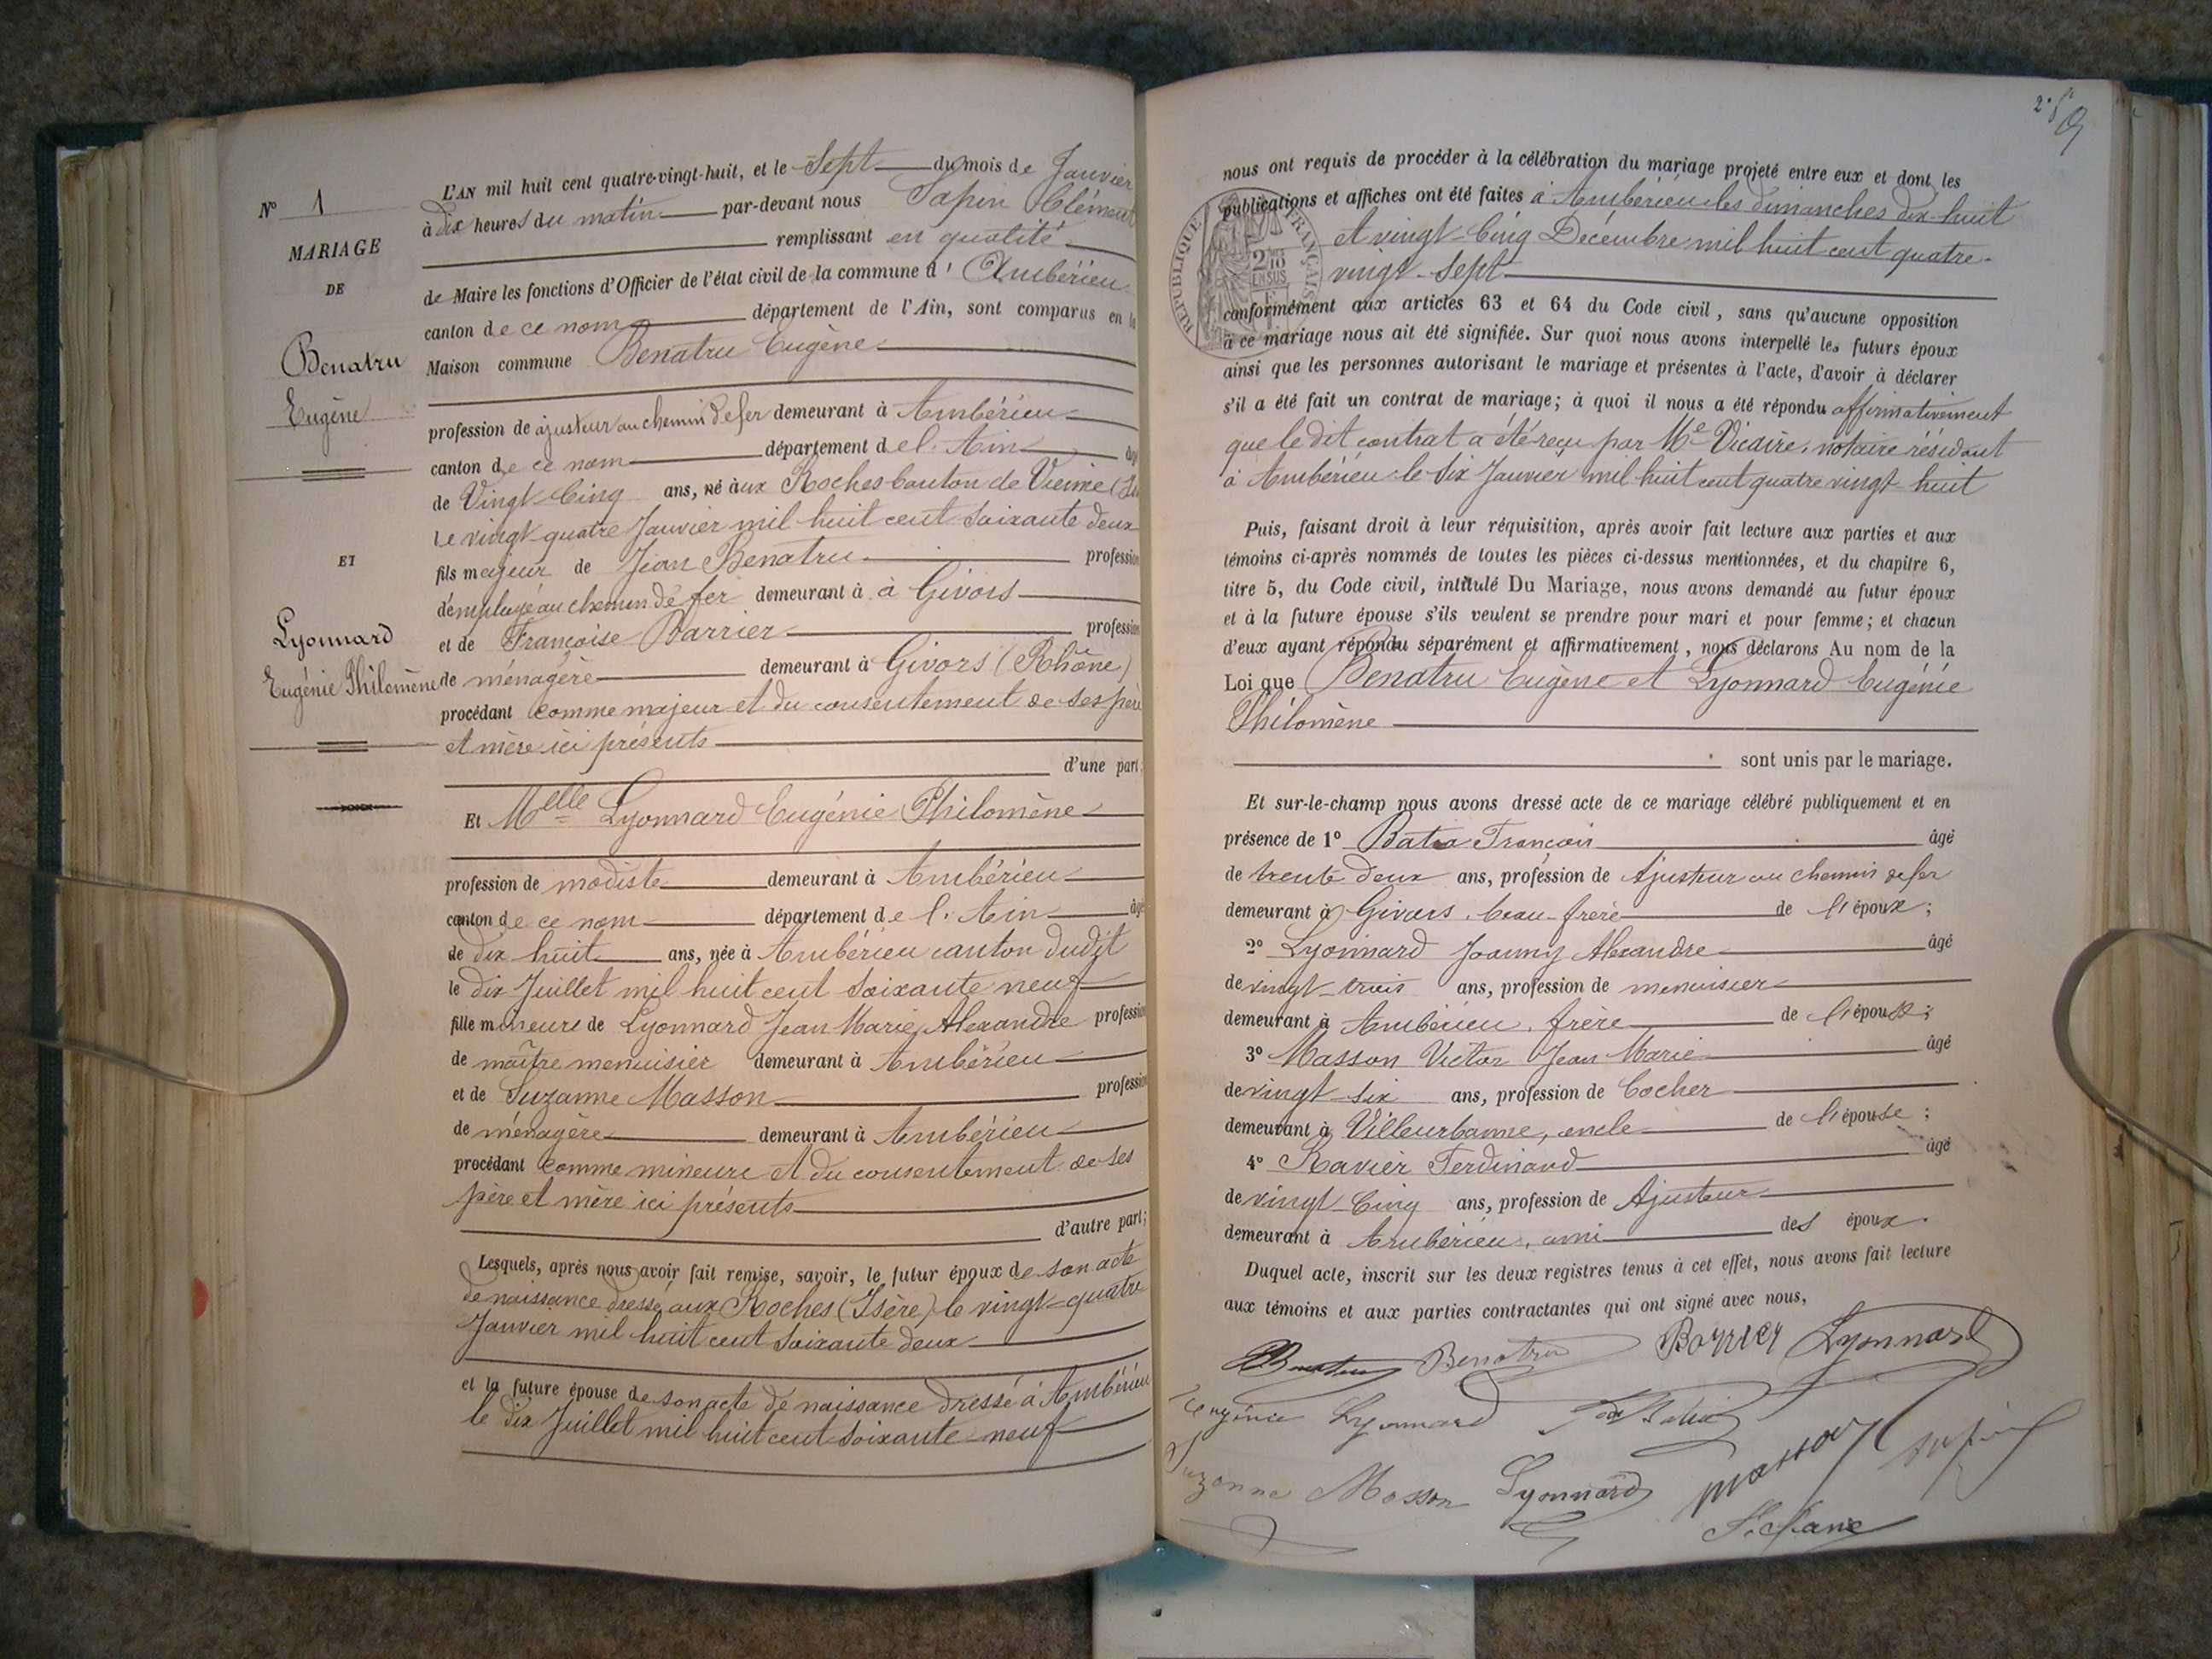 N° 1
MARIAGE
DE
Benatru
Eugène
ET
Lyonnard
Eugénie Philomène
L'AN mil huit cent quatre-vingt-huit, et le Sept du mois de Janvier
à dix heures du matin par-devant nous Sapin Clément
remplissant en qualité
de Maire les fonctions d'Officier de l'état civil de la commune d'Ambérieu
canton de ce nom département de l'Ain, sont comparus en la
Maison commune Benatru Eugène
profession de ajusteur au chemin de fer demeurant à Ambérieu
canton de ce nom département de l'Ain âgé
de Vingt-Cinq ans, né aux Roches canton de Vienne
le vingt-quatre Janvier mil huit cent soixante deux
fils majeur de Jean Benatru profession
d'employé au chemin de fer demeurant à à Givors
et de Françoise Barrier profession
de ménagère demeurant à Givors (Rhône)
procédant comme majeur et du consentement de ses père
et mère ici présents
d'une part.
Et Melle Lyonnard Eugénie Philomène
profession de modiste demeurant à Ambérieu
canton de ce nom département de l'Ain âgé
de dix huit ans, née à Ambérieu canton dudit
le dix Juillet mil huit cent soixante neuf
fille mineure de Lyonnard Jean Marie Alexandre profession
de maître menuisier demeurant à Ambérieu
et de Suzanne Masson profession
de ménagère demeurant à Ambérieu
procédant comme mineure et du consentement de ses
père et mère ici présents
d'autre part;
Lesquels, après nous avoir fait remise, savoir, le futur époux de son acte
de naissance dressé aux Roches (Isère) le vingt-quatre
Janvier mil huit cent soixante deux
et la future épouse de son acte de naissance dressé à Ambérieu
le dix Juillet mil huit cent soixante-neuf
nous ont requis de procéder à la célébration du mariage projeté entre eux et dont les
publications et affiches ont été faites à Ambérieu les dimanches dix-huit
et vingt-Cinq Décembre mil huit cent quatre-
vingt-sept
RÉPUBLIQUE FRANÇAISE
2/10 EN SUS
conformément aux articles 63 et 64 du Code civil, sans qu'aucune opposition
à ce mariage nous ait été signifiée. Sur quoi nous avons interpellé les futurs époux
ainsi que les personnes autorisant le mariage et présentes à l'acte, d'avoir à déclarer
s'il a été fait un contrat de mariage; à quoi il nous a été répondu affirmativement
que le dit contrat a été reçu par Me Vicaire, notaire résidant
à Ambérieu le six Janvier mil huit cent quatre vingt huit
Puis, faisant droit à leur réquisition, après avoir fait lecture aux parties et aux
témoins ci-après nommés de toutes les pièces ci-dessus mentionnées, et du chapitre 6,
titre 5, du Code civil, intitulé Du Mariage, nous avons demandé au futur époux
et à la future épouse s'ils veulent se prendre pour mari et pour femme; et chacun
d'eux ayant répondu séparément et affirmativement, nous déclarons Au nom de la
Loi que Benatru Eugène et Lyonnard Eugénie
Philomène
sont unis par le mariage.
Et sur-le-champ nous avons dressé acte de ce mariage célébré publiquement et en
présence de 1° François âgé
de trente deux ans, profession de Ajusteur au chemin de fer
demeurant à Givors, beau-frère de l'époux;
2° Lyonnard Joanny Alexandre âgé
de vingt-trois ans, profession de menuisier
demeurant à Ambérieu, frère de l'épouse;
3° Masson Victor Jean Marie âgé
de vingt-six ans, profession de Cocher
demeurant à Villeurbanne, oncle de l'épouse;
4° Ravier Ferdinand âgé
de vingt-Cinq ans, profession de Ajusteur
demeurant à Ambérieu, ami des époux.
Duquel acte, inscrit sur les deux registres tenus à cet effet, nous avons fait lecture
aux témoins et aux parties contractantes qui ont signé avec nous,
Benatru Barrier Lyonnard
Eugénie Lyonnard
Suzanne Masson Lyonnard Masson Sapin